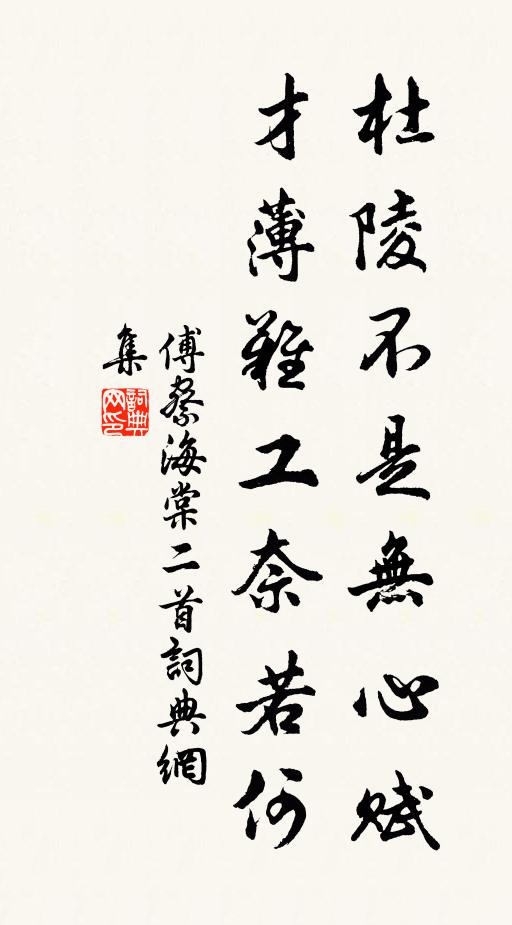 杜陵不是無心賦
才薄難工奈若何
傅察海棠二首詞典網
集
詞典网印